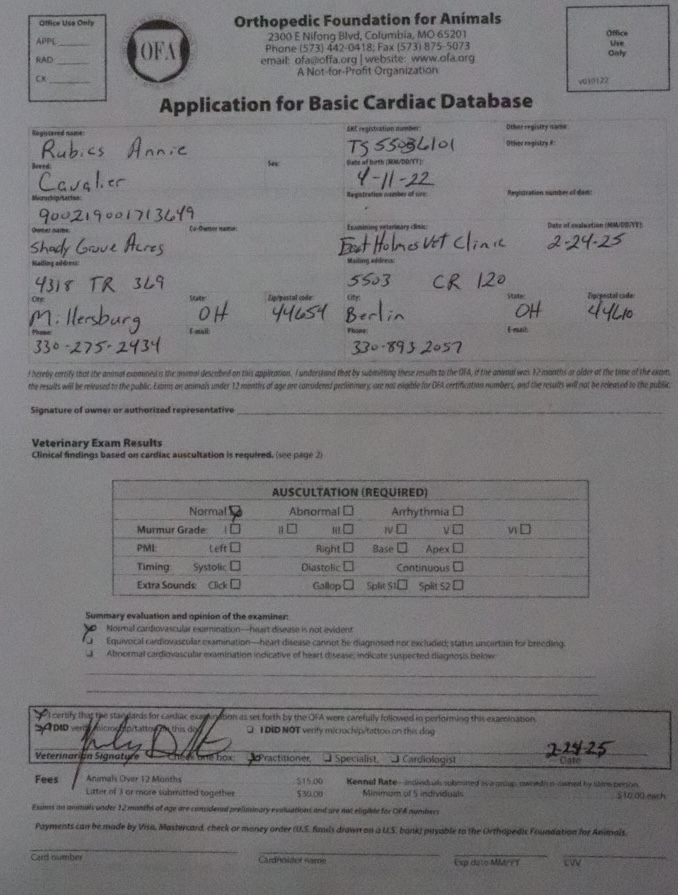 Office Use Only
APPL
RAD
CK
OFA
Orthopedic Foundation for Animals
2300 E Nifong Blvd, Columbia, MO 65201
Phone (573) 442-0418; Fax (573) 875-5073
email: ofa@offa.org | website: www.ofa.org
A Not-for-Profit Organization
Office
Use
Only
v010122
Application for Basic Cardiac Database
Registered name: registration number: Other registry name:
Rubies Annie TS55036101 Other registry #:
Breed: Sex: Date of birth (MM/DD/YY):
Cavalier 4-11-22
Microchip/tattoo: Registration number of sire: Registration number of dam:
900219001713649
Owner name: Co-Owner name: Examining veterinary clinic: Date of evaluation (MM/DD/YY):
Shady Grove Acres East Holmes Vet Clinic 2-24-25
Mailing address: Mailing address:
4318 TR 369 5503 CR 120
City: State: Zip/postal code: City: State: Zip/postal code:
Millersburg OH 44654 Berlin OH 44610
Phone: E-mail: Phone: E-mail:
330-275-2434 330-893 2057
I hereby certify that the animal examined is the animal described on this application. I understand that by submitting these results to the OFA, if the animal was 12 months or older at the time of the exam,
the results will be released to the public. Exams on animals under 12 months of age are considered preliminary, are not eligible for OFA certification numbers, and the results will not be released to the public.
Signature of owner or authorized representative
Veterinary Exam Results
Clinical findings based on cardiac auscultation is required. (see page 2)
AUSCULTATION (REQUIRED)
Normal Abnormal Arrhythmia
Murmur Grade: I II III IV V VI
PMI: Left Right Base Apex
Timing: Systolic Diastolic Continuous
Extra Sounds: Click Gallop Split S1 Split S2
Summary evaluation and opinion of the examiner:
Normal cardiovascular examination—heart disease is not evident
Equivocal cardiovascular examination—heart disease cannot be diagnosed nor excluded; status uncertain for breeding.
Abnormal cardiovascular examination indicative of heart disease; indicate suspected diagnosis below:
I certify that the standards for cardiac examination as set forth by the OFA were carefully followed in performing this examination
I DID verify microchip/tattoo on this dog I DID NOT verify microchip/tattoo on this dog
Veterinarian Signature Check one box: Practitioner, Specialist, Cardiologist 2-24-25
Date
Fees Animals Over 12 Months $15.00 Kennel Rate—individuals submitted as a group, owned/co-owned by same person.
Litter of 3 or more submitted together $30.00 Minimum of 5 individuals $10.00 each
Exams on animals under 12 months of age are considered preliminary evaluations and are not eligible for OFA numbers
Payments can be made by Visa, Mastercard, check or money order (U.S. funds drawn on a U.S. bank) payable to the Orthopedic Foundation for Animals.
Card number Cardholder name Exp date MM/YY CVV